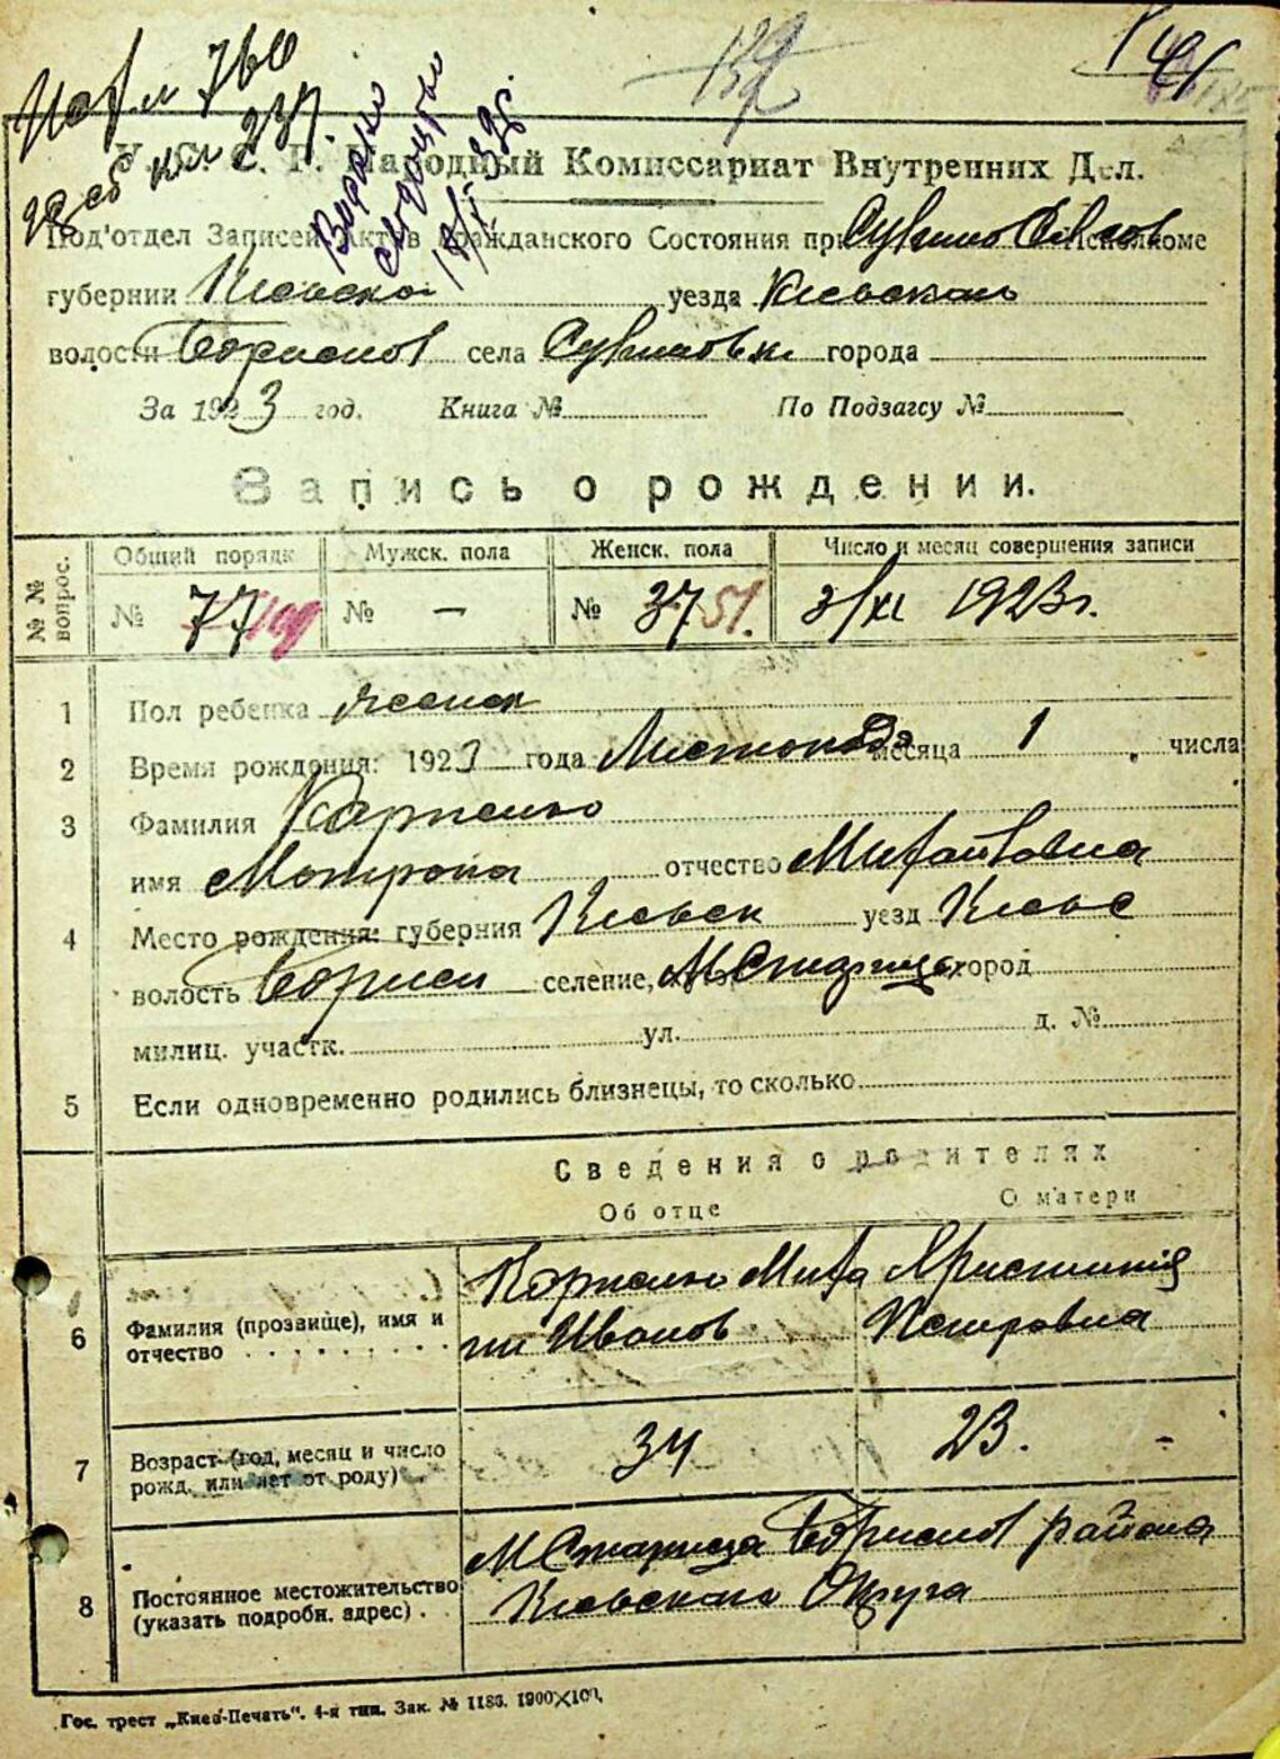 132
У. С. С. Р. Народный Комиссариат Внутренних Дел.
Под'отдел Записей Актов Гражданского Состояния при Исполкоме
губернии Киевской уезда Киевскаго
волости Борисполь села города
За 1923 год. Книга № По Подзагсу №
Запись о рождении.
№ № вопрос.
Общий порядк Мужск. пола Женск. пола Число и месяц совершения записи
№ 77 № — № 37 51. 3/XI 1923 г.
1 Пол ребенка женск
2 Время рождения: 1923 года Листопада месяца 1 числа
3 Фамилия Карпенко
имя Мотрона отчество Михайловна
4 Место рождения: губерния Киевск уезд Киевс
волость Борисп селение, М Старица город
милиц. участк. ул. д. №
5 Если одновременно родились близнецы, то сколько
Сведения о родителях
Об отце О матери
6 Фамилия (прозвище), имя и отчество
Карпенко Миха Христиния
ил Иванов Петровна
7 Возраст (год, месяц и число
рожд. или лет от роду)
34 23. -
8 Постоянное местожительство
(указать подробн. адрес) .
М Старица района
Киевского Округа
Гос. трест „Киев-Печать“. 4-я тип. Зак. № 1186. 1900×100.